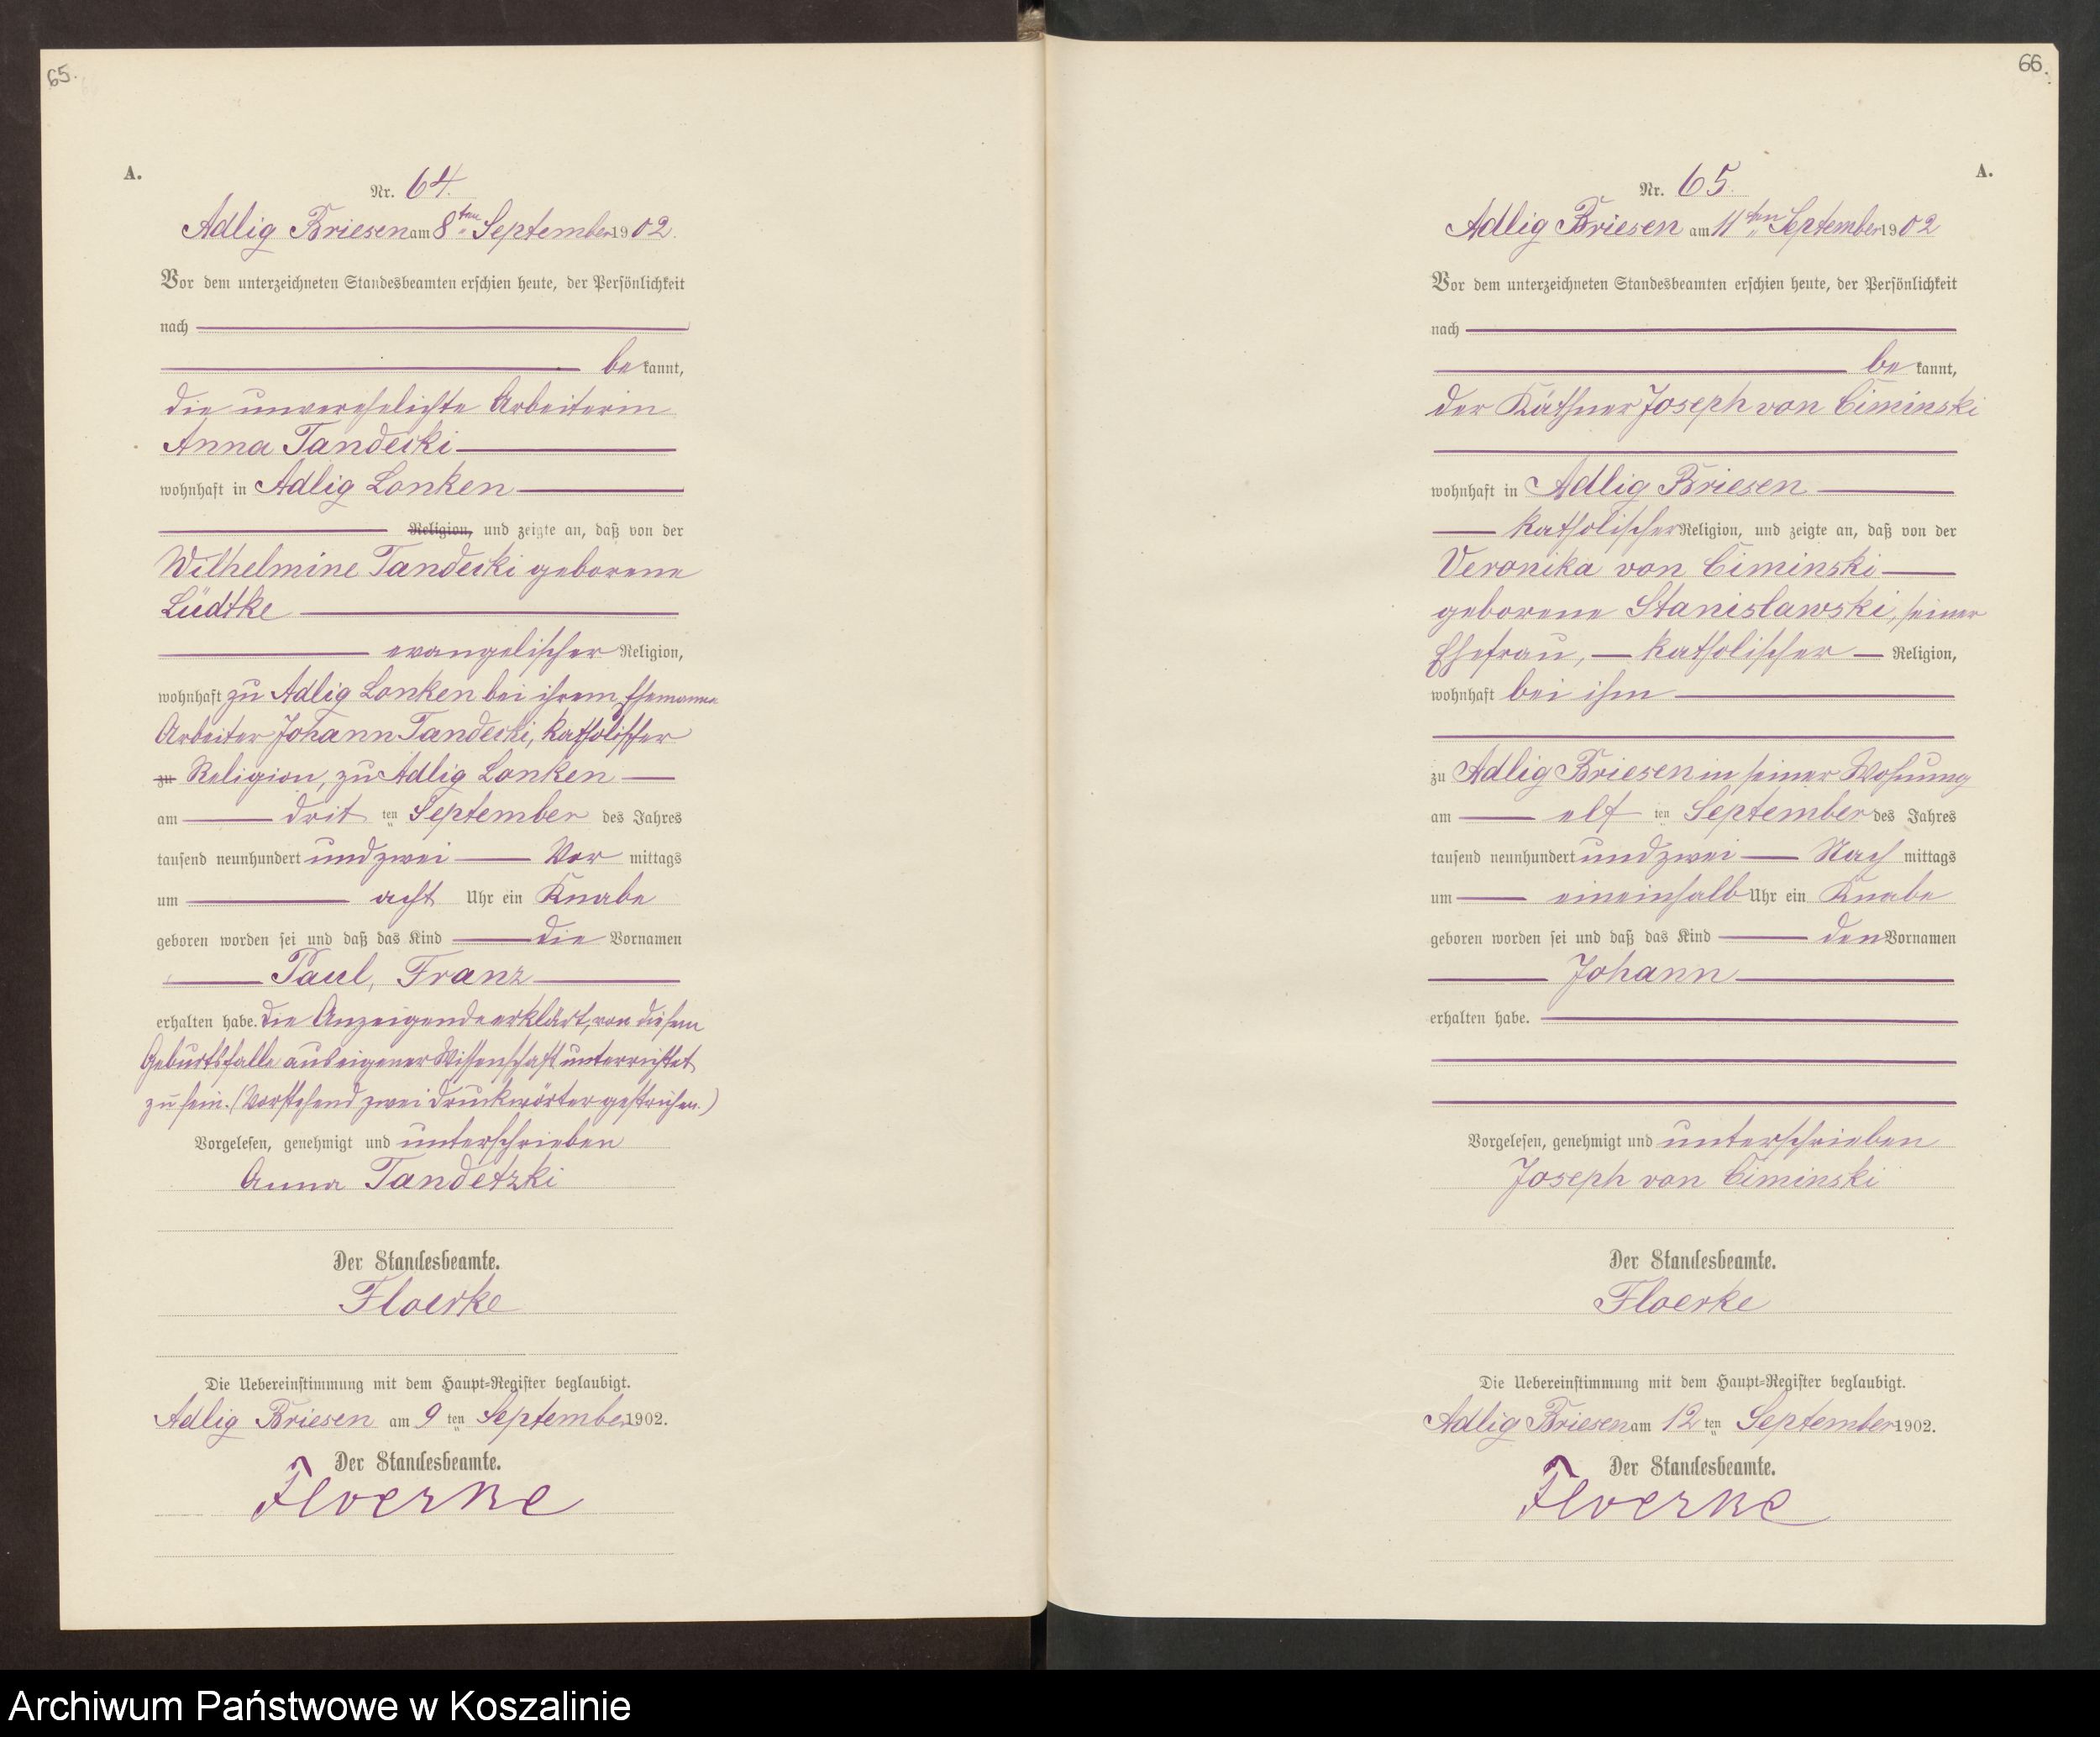 65.
A.
Nr. 64.
Adlig Briesen am 8ten September 1902.
Vor dem unterzeichneten Standesbeamten erschien heute, der Persönlichkeit
nach
bekannt,
die unverehelichte Arbeiterin
Anna Tandecki
wohnhaft in Adlig Lonken
Religion, und zeigte an, daß von der
Wilhelmine Tandecki geborene
Lüdtke
evangelischer Religion,
wohnhaft zu Adlig Lonken bei ihrem Ehemanne
Arbeiter Johann Tandecki, katholischer
zu Religion, zu Adlig Lonken
am dritten September des Jahres
tausend neunhundert und zwei Vormittags
um acht Uhr ein Knabe
geboren worden sei und daß das Kind die Vornamen
Paul, Franz
erhalten habe. Die Anzeigende erklärt, von diesem
Geburtsfalle aus eigener Wissenschaft unterrichtet
zu sein. (Vorstehend zwei Druckwörter gestrichen.)
Vorgelesen, genehmigt und unterschrieben
Anna Tandetzki
Der Standesbeamte.
Floerke
Die Uebereinstimmung mit dem Haupt-Register beglaubigt.
Adlig Briesen am 9ten September 1902.
Der Standesbeamte.
Floerke
66.
A.
Nr. 65.
Adlig Briesen am 11ten September 1902
Vor dem unterzeichneten Standesbeamten erschien heute, der Persönlichkeit
nach
bekannt,
der Käthner Joseph von Ciminski
wohnhaft in Adlig Briesen
katholischer Religion, und zeigte an, daß von der
Veronika von Ciminski
geborene Stanislawski, seiner
Ehefrau, katholischer Religion,
wohnhaft bei ihm
zu Adlig Briesen in seiner Wohnung
am elften September des Jahres
tausend neunhundert und zwei Nachmittags
um eineinhalb Uhr ein Knabe
geboren worden sei und daß das Kind den Vornamen
Johann
erhalten habe.
Vorgelesen, genehmigt und unterschrieben
Joseph von Ciminski
Der Standesbeamte.
Floerke
Die Uebereinstimmung mit dem Haupt-Register beglaubigt.
Adlig Briesen am 12ten September 1902.
Der Standesbeamte.
Floerke
Archiwum Państwowe w Koszalinie